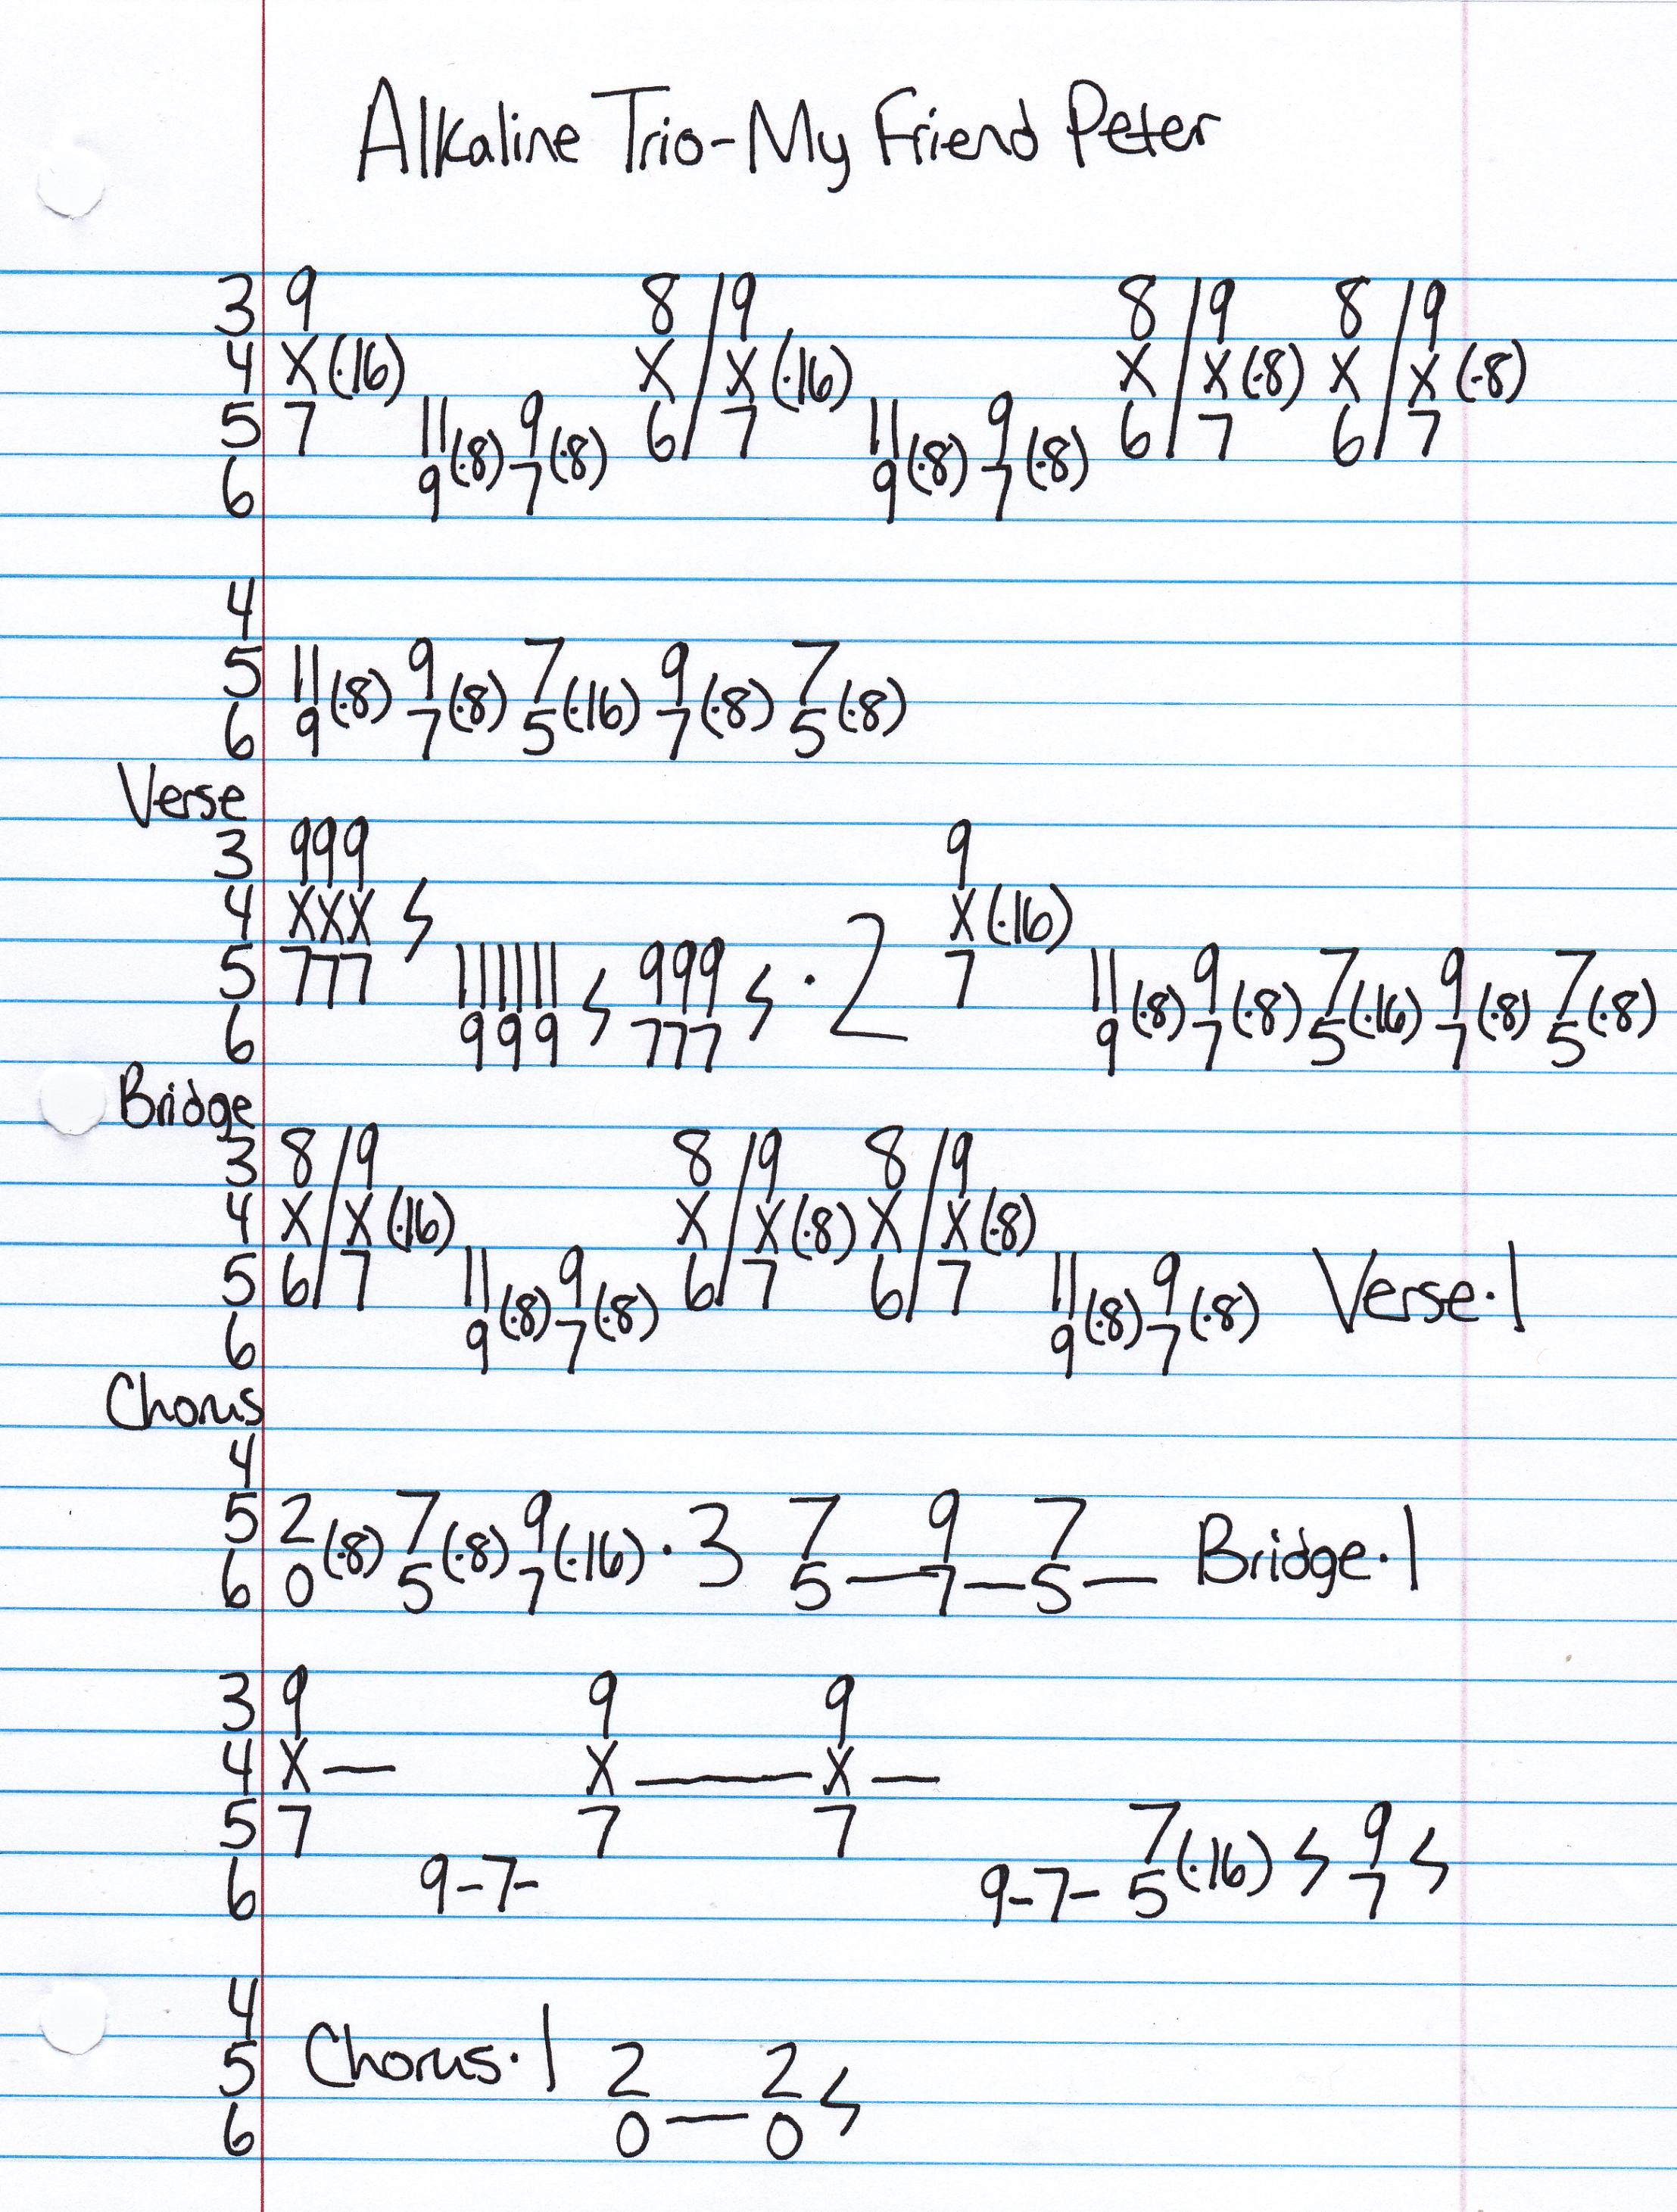 Alkaline Trio-My Friend Peter
3 9 8/9 8/9 8/9
4 X(·16) X/X(·16) X/X(·8) X/X(·8)
5 7 11(·8) 9(·8) 6/7 11(·8) 9(·8) 6/7 6/7
6 9 7 9 7
4
5 11(·8) 9(·8) 7(·16) 9(·8) 7(·8)
6 9 7 5 7 5
Verse
3 999 9
4 XXX ϟ X(·16)
5 777 111111 ϟ 999 ϟ ·2 7 11(·8) 9(·8) 7(·16) 9(·8) 7(·8)
6 999 777 9 7 5 7 5
Bridge
3 8/9 8/9 8/9
4 X/X(·16) X/X(·8) X/X(·8)
5 6/7 11(·8) 9(·8) 6/7 6/7 11(·8) 9(·8) Verse·1
6 9 7 9 7
Chorus
4
5 2(·8) 7(·8) 9(·16)·3 7 9 7 Bridge·1
6 0 5 7 5—7—5—
3 9 9 9
4 X— X——X—
5 7 7 7 7(·16) ϟ 9 ϟ
6 9-7- 9-7- 5 7
4
5 Chorus·1 2 2 ϟ
6 0—0